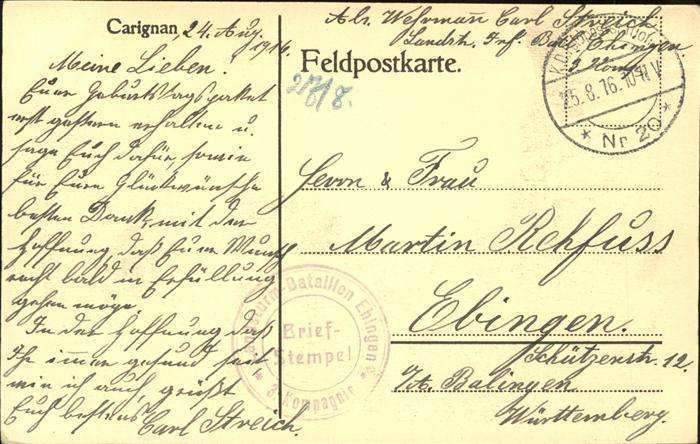 Carignan, 24. Aug. 1916.
Meine Lieben!
Euer Geburtstagspaket
erst gestern erhalten u.
sage Euch dafür, sowie
für Eure Glückwünsche
besten Dank, mit der
Hoffnung, daß Euer Wunsch
recht bald in Erfüllung
gehen möge.
In der Hoffnung daß
Ihr immer gesund seit
wie ich auch grüßt
Euch bestens Carl Streich.
Abs. Wehrmann Carl Streich
Landst. Inf. Batl. Ehingen
3. Komp.
Feldpostkarte.
27/8.
25.8.16. 10-11 V
* Nr 20 *
Herrn & Frau
Martin Rehfuss
Ebingen.
Schützenstr. 12
O/A. Balingen
Württemberg.
Landsturm-Bataillon Ehingen
* 3. Kompagnie *
Brief-
Stempel